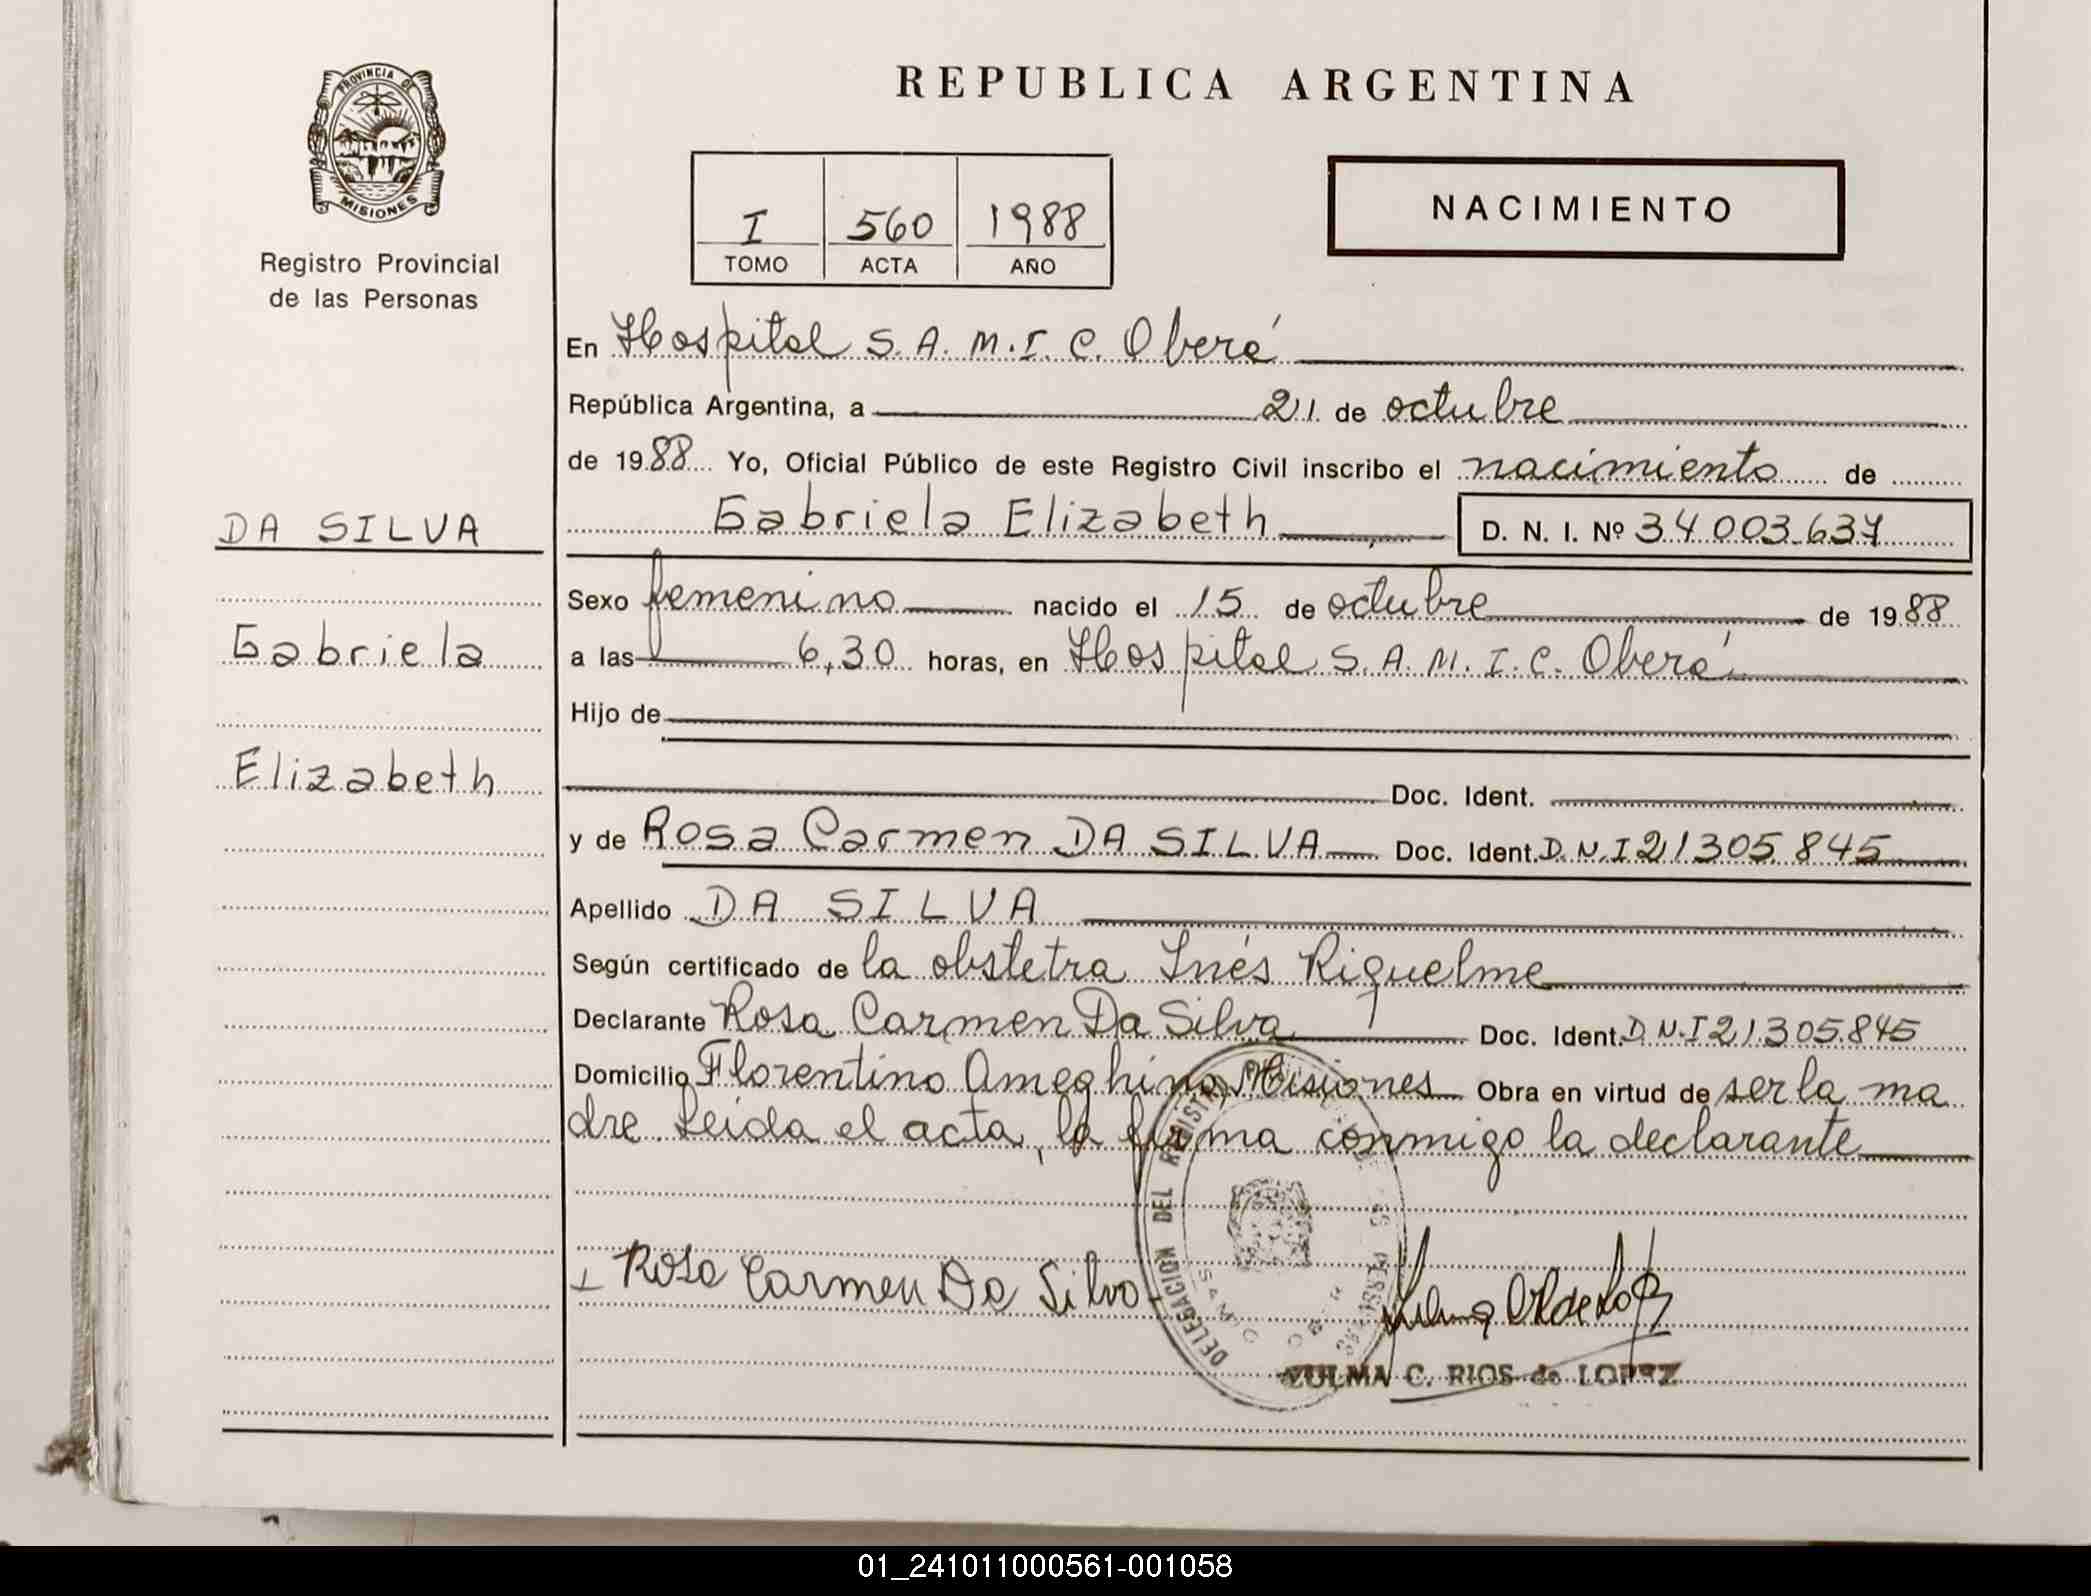 PROVINCIA DE
MISIONES
Registro Provincial
de las Personas
DA SILVA
Gabriela
Elizabeth
REPUBLICA ARGENTINA
I 560 1988
TOMO ACTA AÑO
NACIMIENTO
En Hospital S.A.M.I.C. Oberá
República Argentina, a 21 de octubre
de 1988 Yo, Oficial Público de este Registro Civil inscribo el nacimiento de
Gabriela Elizabeth D. N. I. Nº 34.003.637
Sexo femenino nacido el 15 de octubre de 1988
a las 6,30 horas, en Hospital S.A.M.I.C. Oberá
Hijo de
Doc. Ident.
y de Rosa Carmen DA SILVA Doc. Ident. D.N.I 21305845
Apellido DA SILVA
Según certificado de la obstetra Inés Riquelme
Declarante Rosa Carmen Da Silva Doc. Ident. D.N.I 21.305.845
Domicilio Florentino Ameghino Misiones Obra en virtud de ser la ma
dre Leida el acta, la firma conmigo la declarante
DELEGACION DEL
Rosa Carmen Da Silva
ZULMA C. RIOS de LOPEZ
01_241011000561-001058